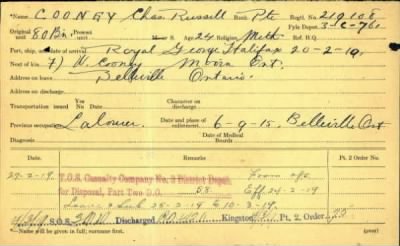 Name COONEY Chas. Russell Rank Pte Regtl. No. 219108
Original unit 80 Bn. Present unit M or S Age 24 Religion Meth Fyle Depot 3-C-761 Ref. H.Q.
Port, ship, and date of arrival Royal George Halifax 20-2-19.
Next of kin F) W. Cooney Moira Ont.
Address on leave Belleville Ontario.
Address on discharge.
Transportation issued Yes No Date Character on discharge
Previous occupation Labourer Date and place of enlistment 6-9-15. Belleville Ont
Diagnosis Date of Medical Boards
Date Remarks Pt. 2 Order No.
27-2-19. T.O.S. Casualty Company No. 3 District Depot, From o/s.
for Disposal, Part Two D.O. 58. Eff 24-2-19
Leave & Sub 25-2-19 to 10-3-19.
S.O.S. Discharged Kingston Pt. 2, Order
Name will be given in full; surname first. (over)